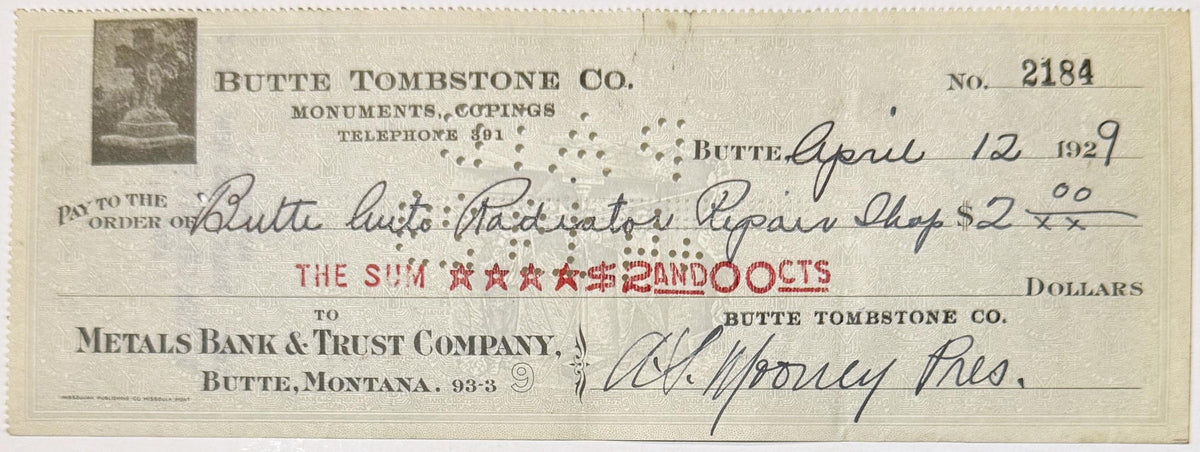 BUTTE TOMBSTONE CO.
MONUMENTS, COPINGS
TELEPHONE 391
NO. 2184
BUTTE, April 12 1929
PAY TO THE ORDER OF Butte Auto Radiator Repair Shop $2 00/xx
THE SUM ★★★★$2AND00CTS
DOLLARS
TO
METALS BANK & TRUST COMPANY,
BUTTE, MONTANA. 93-3 9
BUTTE TOMBSTONE CO.
A.S. Mooney Pres.
MISSOULIAN PUBLISHING CO MISSOULA MONT